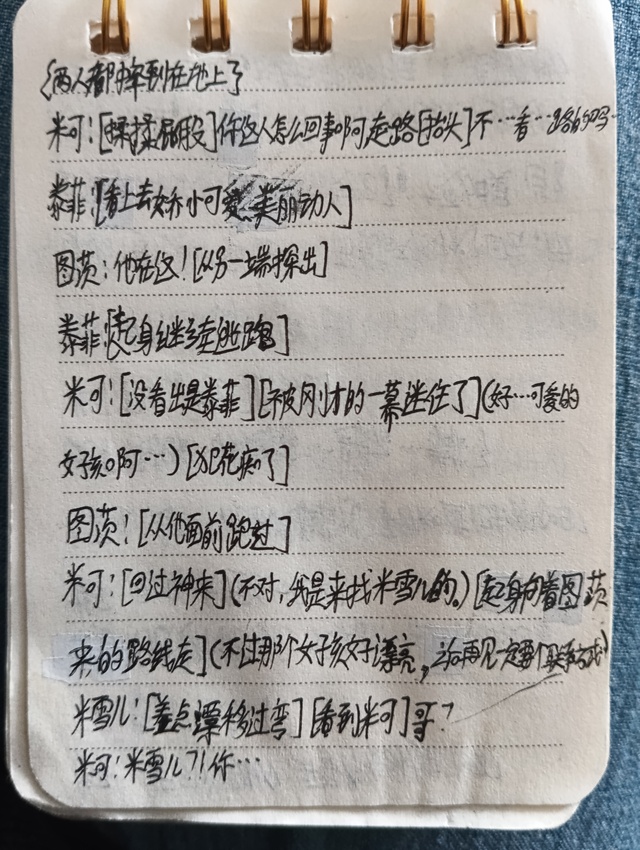 {两人都摔到在地上了
米可:[揉揉屁股]你这人怎么回事啊走路[抬头]不…看…路的吗…
泰菲:[看上去娇小可爱美丽动人]
图茨:他在这![从另一端探出]
泰菲:[起身继续逃跑]
米可:[没看出是泰菲][被刚才的一幕迷住了](好…可爱的
女孩啊…)[犯花痴了]
图茨:[从他面前跑过]
米可:[回过神来](不对,我是来找米雪儿的。)[起身向着图茨
来的路线走](不过那个女孩好漂亮,再见一定要个联系方式)
米雪儿:[差点漂移过弯][看到米可]哥?
米可:米雪儿?!你…